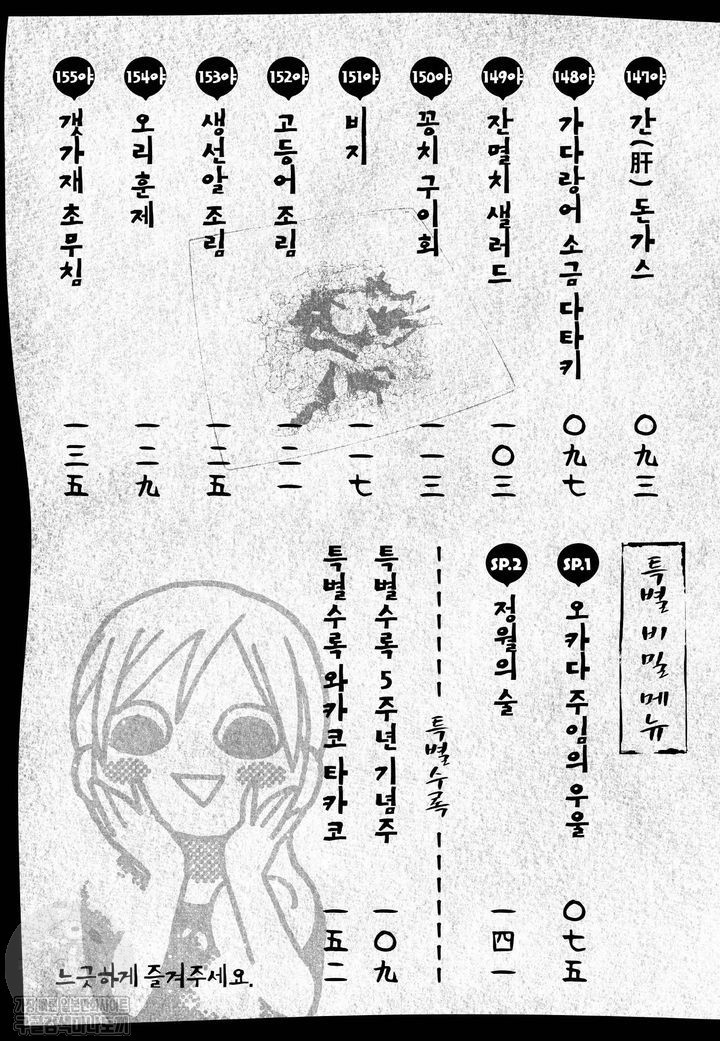 147야
간(肝) 돈가스
〇九三
148야
가다랑어 소금 다타키
〇九七
149야
잔멸치 샐러드
一〇三
150야
꽁치 구이회
一一三
151야
비지
一一七
152야
고등어 조림
一二一
153야
생선알 조림
一二五
154야
오리 훈제
一二九
155야
갯가재 초무침
一三五
특별 비밀 메뉴
SP.1
오카다 주임의 우울
〇七五
SP.2
정월의 술
一四一
특별수록
특별수록 5주년 기념주
一〇九
특별수록 와카코 타카코
一五二
느긋하게 즐겨주세요.